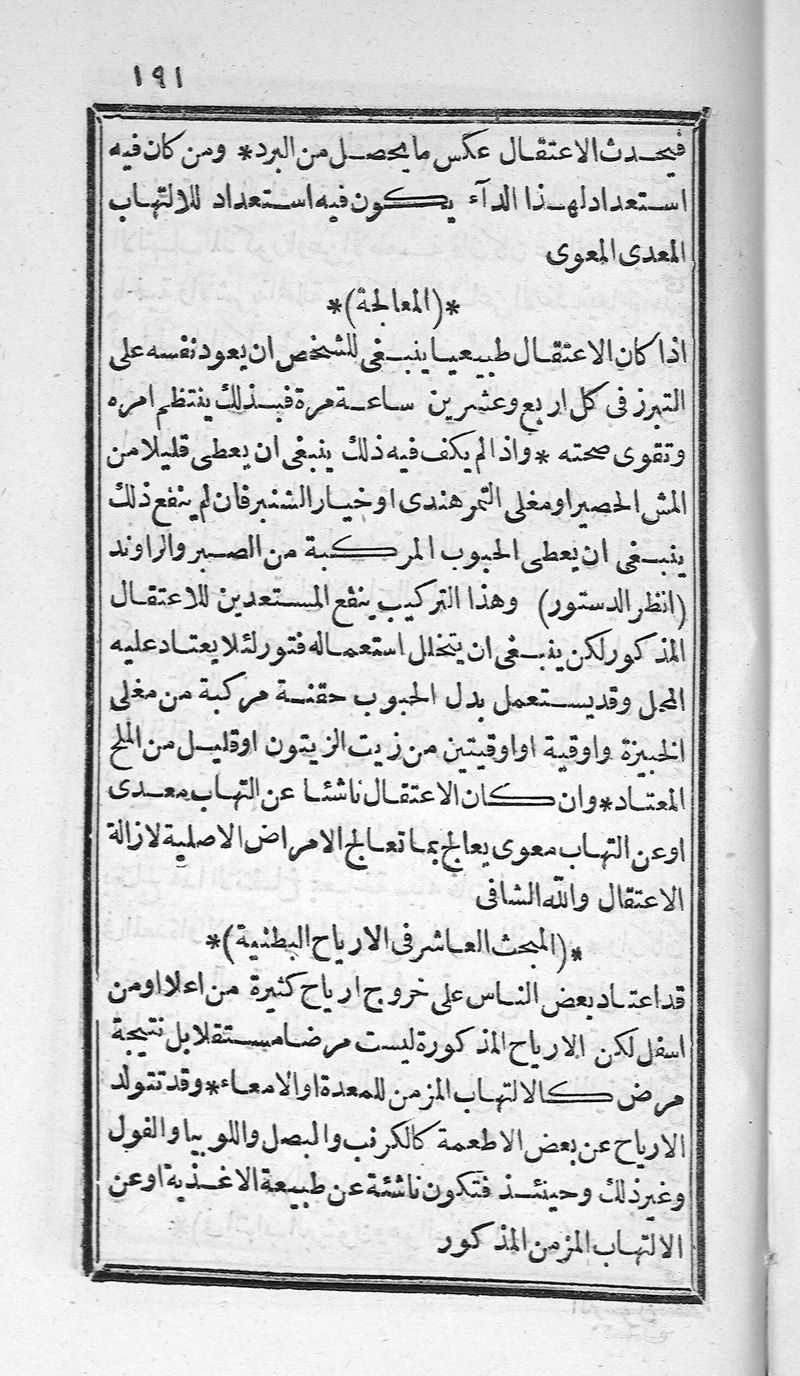 ١٩١
فيحدث الاعتقال عكس ما يحصل من البرد * ومن كان فيه
استعداد لهذا الدآء يكون فيه استعداد للالتهاب
المعدى المعوى
*(المعالجة)*
اذا كان الاعتقال طبيعيا ينبغى للشخص ان يعود نفسه على
التبرز فى كل اربع وعشرين ساعة مرة فبذلك ينتظم امره
وتقوى صحته * واذا لم يكف فيه ذلك ينبغى ان يعطى قليلا من
المش الحصير او مغلى التمر هندى او خيار الشنبر فان لم ينفع ذلك
ينبغى ان يعطى الحبوب المركبة من الصبر والراوند
(انظر الدستور) وهذا التركيب ينفع المستعدين للاعتقال
المذكور لكن ينبغى ان يتخلل استعماله فتور لئلا يعتاد عليه
المحل وقد يستعمل بدل الحبوب حقنة مركبة من مغلى
الخبيزة واوقية او اوقيتين من زيت الزيتون او قليل من الملح
المعتاد * وان كان الاعتقال ناشئا عن التهاب معدى
او عن التهاب معوى يعالج بما تعالج الامراض الاصلية لازالة
الاعتقال والله الشافى
*(المبحث العاشر فى الارياح البطنية)*
قد اعتاد بعض الناس على خروج ارياح كثيرة من اعلا او من
اسفل لكن الارياح المذكورة ليست مرضا مستقلا بل نتيجة
مرض كالالتهاب المزمن للمعدة او الامعاء * وقد تتولد
الارياح عن بعض الاطعمة كالكرنب والبصل واللوبيا والفول
وغير ذلك وحينئذ فتكون ناشئة عن طبيعة الاغذية او عن
الالتهاب المزمن المذكور